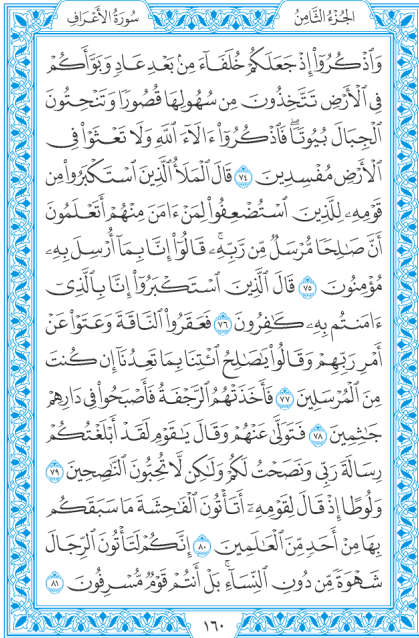 الجُزْءُ الثَّامِنُ
سُورَةُ الأَعْرَافِ
وَٱذْكُرُوٓا۟ إِذْ جَعَلَكُمْ خُلَفَآءَ مِنۢ بَعْدِ عَادٍ وَبَوَّأَكُمْ
فِى ٱلْأَرْضِ تَتَّخِذُونَ مِن سُهُولِهَا قُصُورًا وَتَنْحِتُونَ
ٱلْجِبَالَ بُيُوتًا ۖ فَٱذْكُرُوٓا۟ ءَالَآءَ ٱللَّهِ وَلَا تَعْثَوْا۟ فِى
ٱلْأَرْضِ مُفْسِدِينَ ٧٤ قَالَ ٱلْمَلَأُ ٱلَّذِينَ ٱسْتَكْبَرُوا۟ مِن
قَوْمِهِۦ لِلَّذِينَ ٱسْتُضْعِفُوا۟ لِمَنْ ءَامَنَ مِنْهُمْ أَتَعْلَمُونَ
أَنَّ صَٰلِحًا مُّرْسَلٌ مِّن رَّبِّهِۦ ۚ قَالُوٓا۟ إِنَّا بِمَآ أُرْسِلَ بِهِۦ
مُؤْمِنُونَ ٧٥ قَالَ ٱلَّذِينَ ٱسْتَكْبَرُوٓا۟ إِنَّا بِٱلَّذِىٓ
ءَامَنتُم بِهِۦ كَٰفِرُونَ ٧٦ فَعَقَرُوا۟ ٱلنَّاقَةَ وَعَتَوْا۟ عَنْ
أَمْرِ رَبِّهِمْ وَقَالُوا۟ يَٰصَٰلِحُ ٱئْتِنَا بِمَا تَعِدُنَآ إِن كُنتَ
مِنَ ٱلْمُرْسَلِينَ ٧٧ فَأَخَذَتْهُمُ ٱلرَّجْفَةُ فَأَصْبَحُوا۟ فِى دَارِهِمْ
جَٰثِمِينَ ٧٨ فَتَوَلَّىٰ عَنْهُمْ وَقَالَ يَٰقَوْمِ لَقَدْ أَبْلَغْتُكُمْ
رِسَالَةَ رَبِّى وَنَصَحْتُ لَكُمْ وَلَٰكِن لَّا تُحِبُّونَ ٱلنَّٰصِحِينَ ٧٩
وَلُوطًا إِذْ قَالَ لِقَوْمِهِۦٓ أَتَأْتُونَ ٱلْفَٰحِشَةَ مَا سَبَقَكُم
بِهَا مِنْ أَحَدٍ مِّنَ ٱلْعَٰلَمِينَ ٨٠ إِنَّكُمْ لَتَأْتُونَ ٱلرِّجَالَ
شَهْوَةً مِّن دُونِ ٱلنِّسَآءِ ۚ بَلْ أَنتُمْ قَوْمٌ مُّسْرِفُونَ ٨١
١٦٠